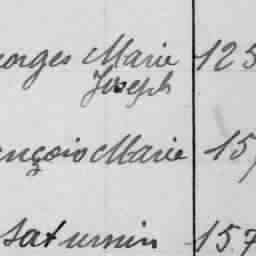 eorges Marie 125
Joseph
ençois Marie 15
Saturnin 157